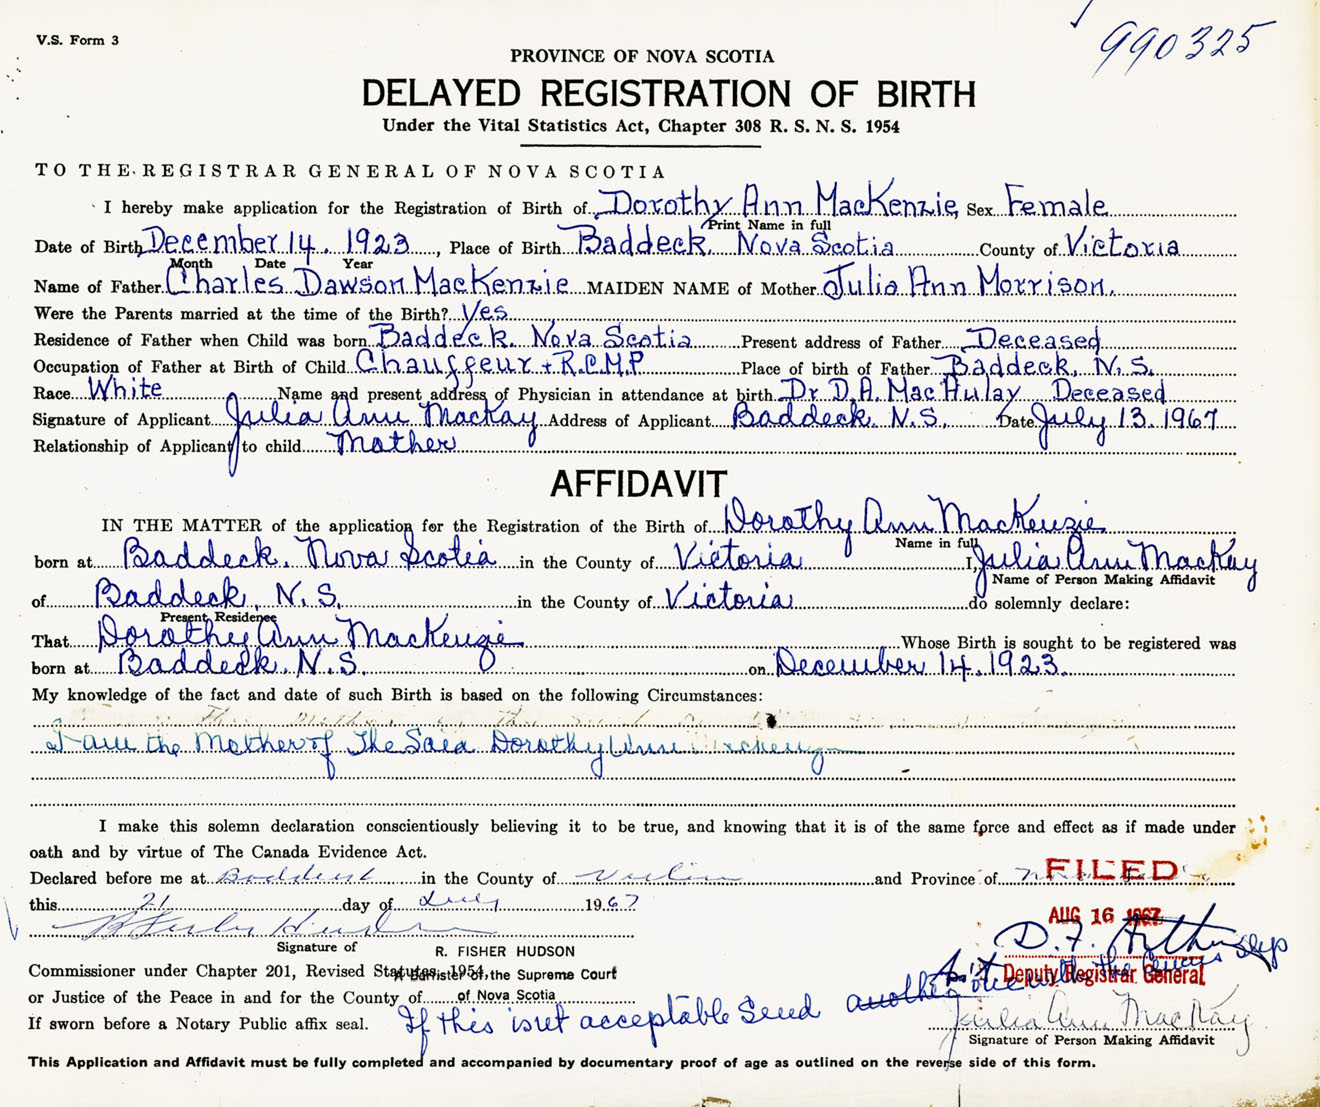 990325
V.S. Form 3
PROVINCE OF NOVA SCOTIA
DELAYED REGISTRATION OF BIRTH
Under the Vital Statistics Act, Chapter 308 R. S. N. S. 1954
TO THE REGISTRAR GENERAL OF NOVA SCOTIA
I hereby make application for the Registration of Birth of Dorothy Ann MacKenzie, Sex Female
Print Name in full
Date of Birth December 14, 1923, Place of Birth Baddeck, Nova Scotia County of Victoria
Month Date Year
Name of Father Charles Dawson MacKenzie MAIDEN NAME of Mother Julia Ann Morrison.
Were the Parents married at the time of the Birth? Yes
Residence of Father when Child was born Baddeck. Nova Scotia Present address of Father Deceased
Occupation of Father at Birth of Child Chauffeur + R.C.M.P Place of birth of Father Baddeck, N.S.
Race White Name and present address of Physician in attendance at birth Dr. D.A. MacAulay Deceased
Signature of Applicant Julia Ann MacKay Address of Applicant Baddeck. N.S. Date July 13. 1967
Relationship of Applicant to child Mother
AFFIDAVIT
IN THE MATTER of the application for the Registration of the Birth of Dorothy Ann MacKenzie
Name in full
born at Baddeck. Nova Scotia in the County of Victoria I, Julia Ann MacKay
Name of Person Making Affidavit
of Baddeck, N.S. in the County of Victoria do solemnly declare:
Present Residence
That Dorothy Ann MacKenzie Whose Birth is sought to be registered was
born at Baddeck. N.S. on December 14, 1923.
My knowledge of the fact and date of such Birth is based on the following Circumstances:
I am the Mother of The Said Dorothy Ann
I make this solemn declaration conscientiously believing it to be true, and knowing that it is of the same force and effect as if made under
oath and by virtue of The Canada Evidence Act.
Declared before me at Baddeck in the County of Victoria and Province of
FILED
this 21 day of July 1967
AUG 16 1967
Signature of R. FISHER HUDSON
Commissioner under Chapter 201, Revised Statutes, 1954,
A Barrister of the Supreme Court
Deputy Registrar General
or Justice of the Peace in and for the County of of Nova Scotia
If sworn before a Notary Public affix seal. If this isnt acceptable Send
Julia Ann MacKay
Signature of Person Making Affidavit
This Application and Affidavit must be fully completed and accompanied by documentary proof of age as outlined on the reverse side of this form.